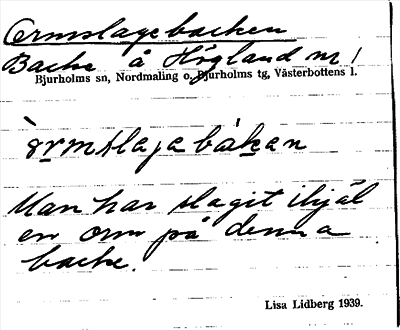 Ormslagebacken
Backe å Högland m!
Bjurholms sn, Nordmaling o. Bjurholms tg, Västerbottens l.
òrmslajabàkan
Man har slagit ihjäl
en orm på denna
backe.
Lisa Lidberg 1939.